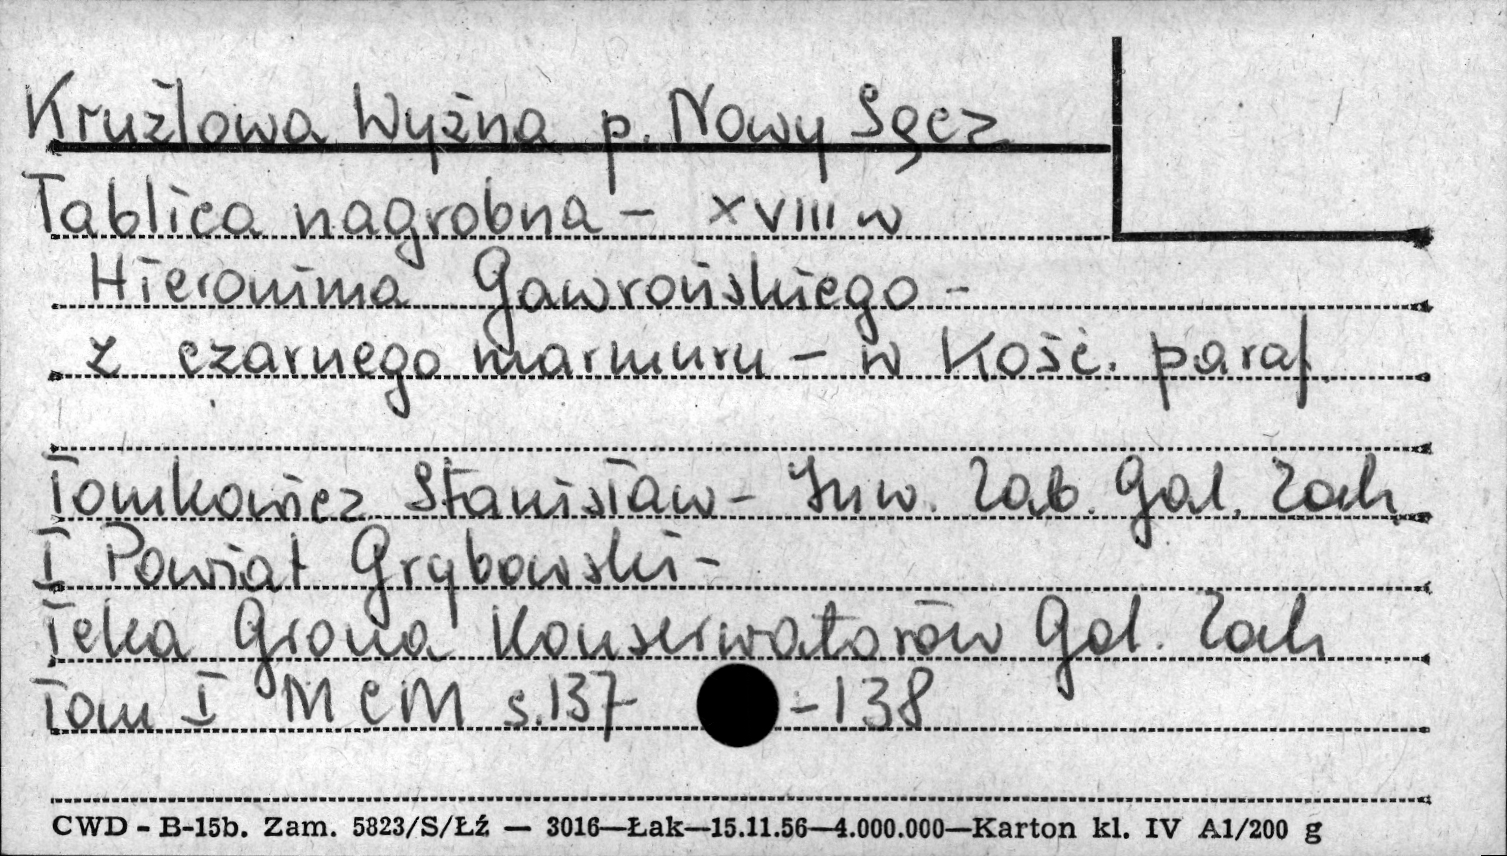 Krużlowa Wyżna p. Nowy Sącz
Tablica nagrobna – XVIII w
Hieronima Gawrońskiego –
z czarnego marmuru – w Kość. paraf.
Tomkowicz Stanisław – Inw. Zab. Gal. Zach
I Powiat Grybowski –
Teka Grona Konserwatorów Gal. Zach
Tom I MCM s. 137 – 138
CWD - B-15b. Zam. 5823/S/Łź — 3016—Łak—15.11.56—4.000.000—Karton kl. IV A1/200 g